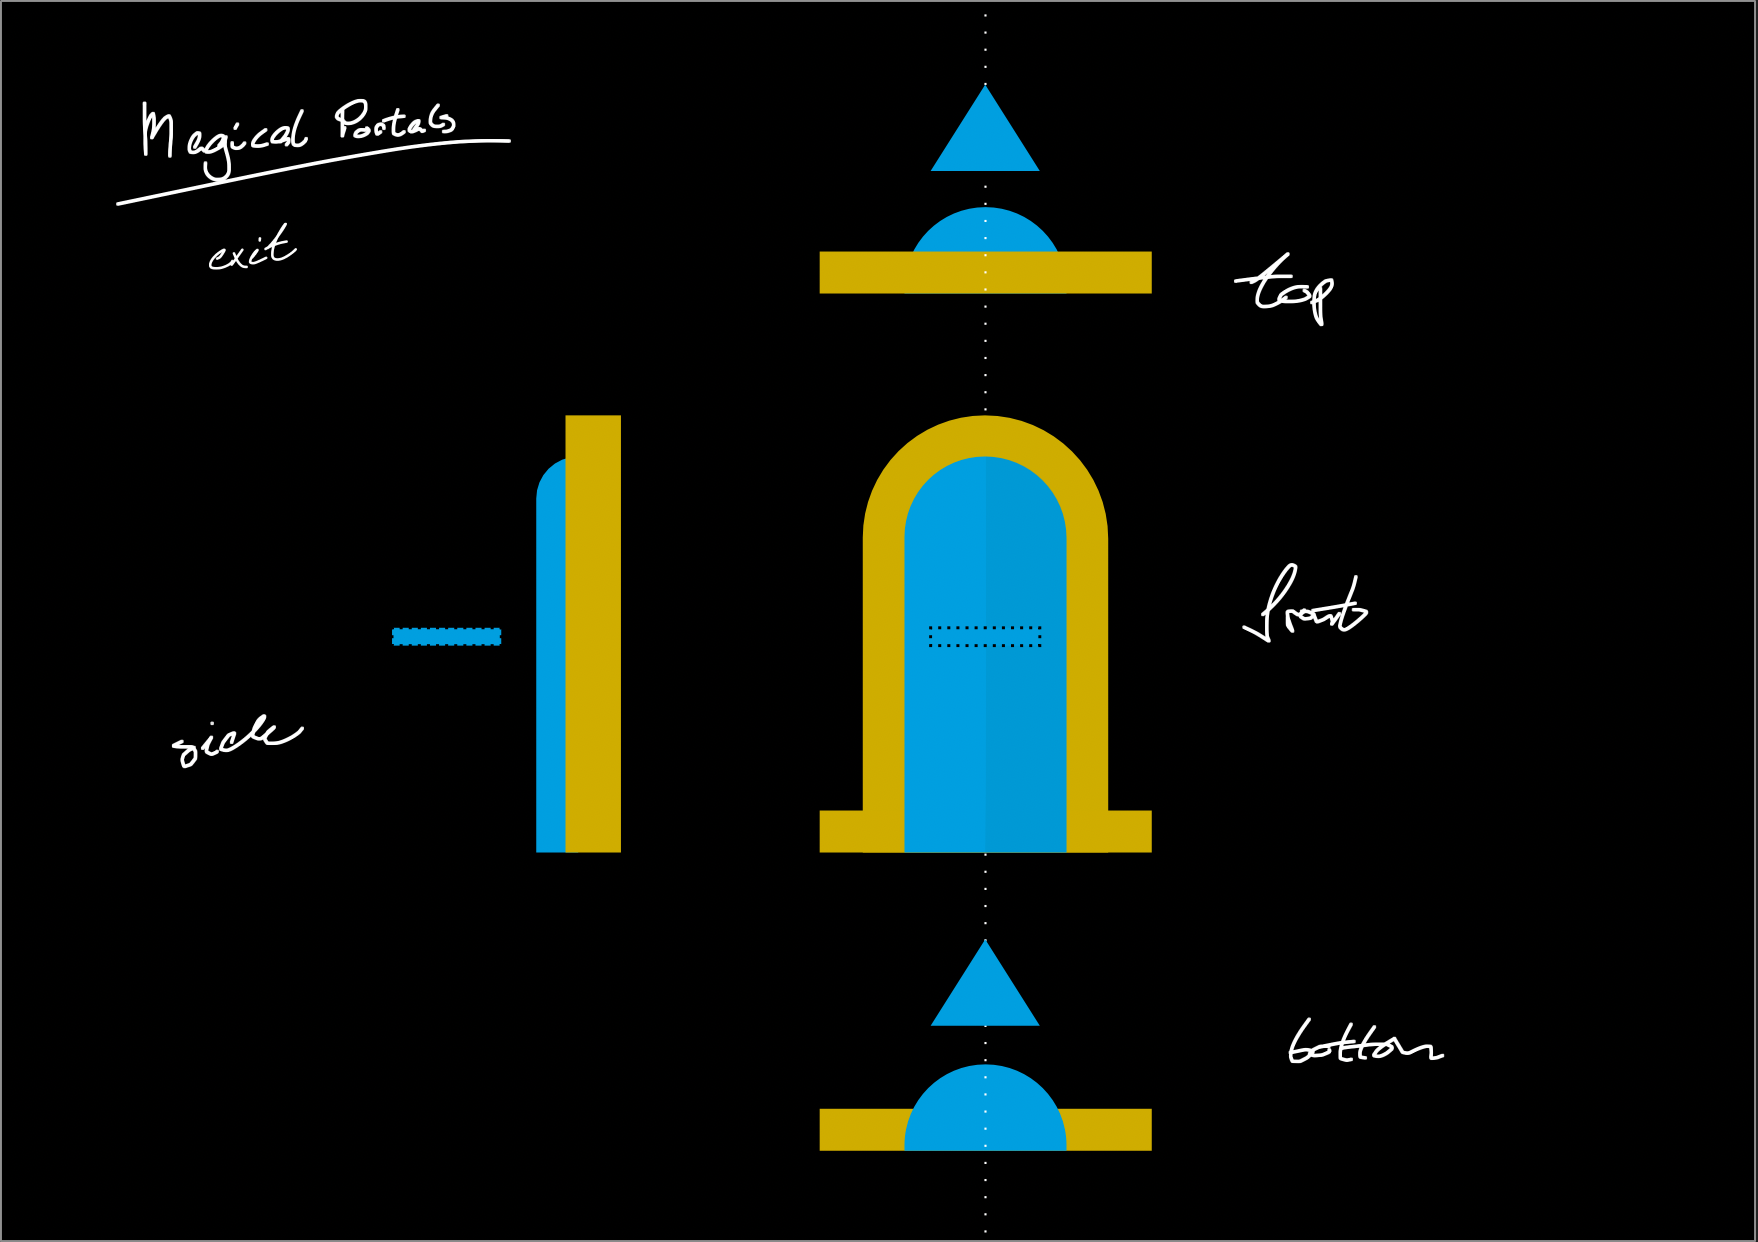 Magical Portals
exit
top
front
side
bottom